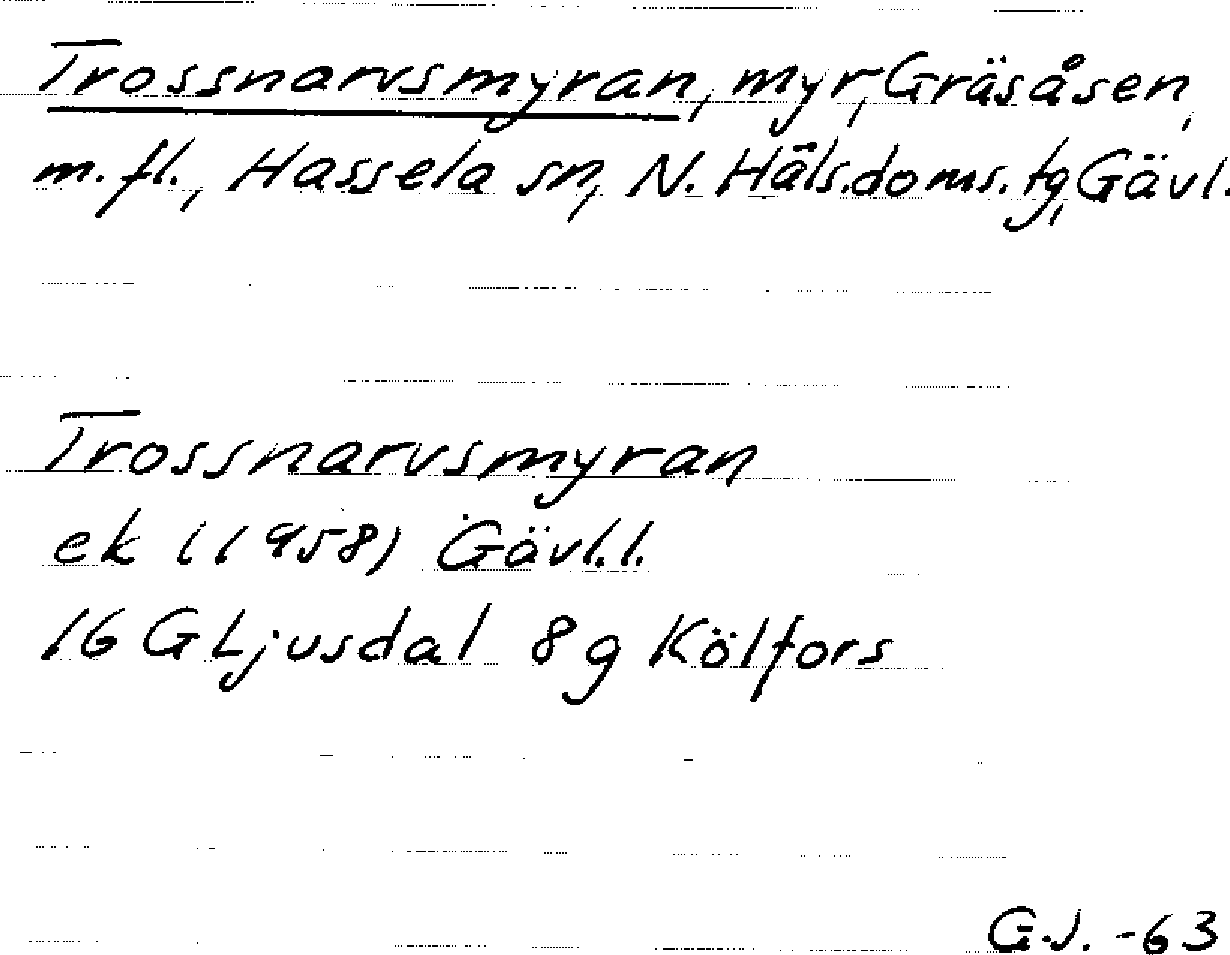 Trossnarvsmyran, myr, Gräsåsen,
m. fl., Hassela sn, N. Häls. doms. tg, Gävl.
Trossnarvsmyran
ek (1958) Gävl. l.
16 G Ljusdal 8 g Kölfors
G.J. -63